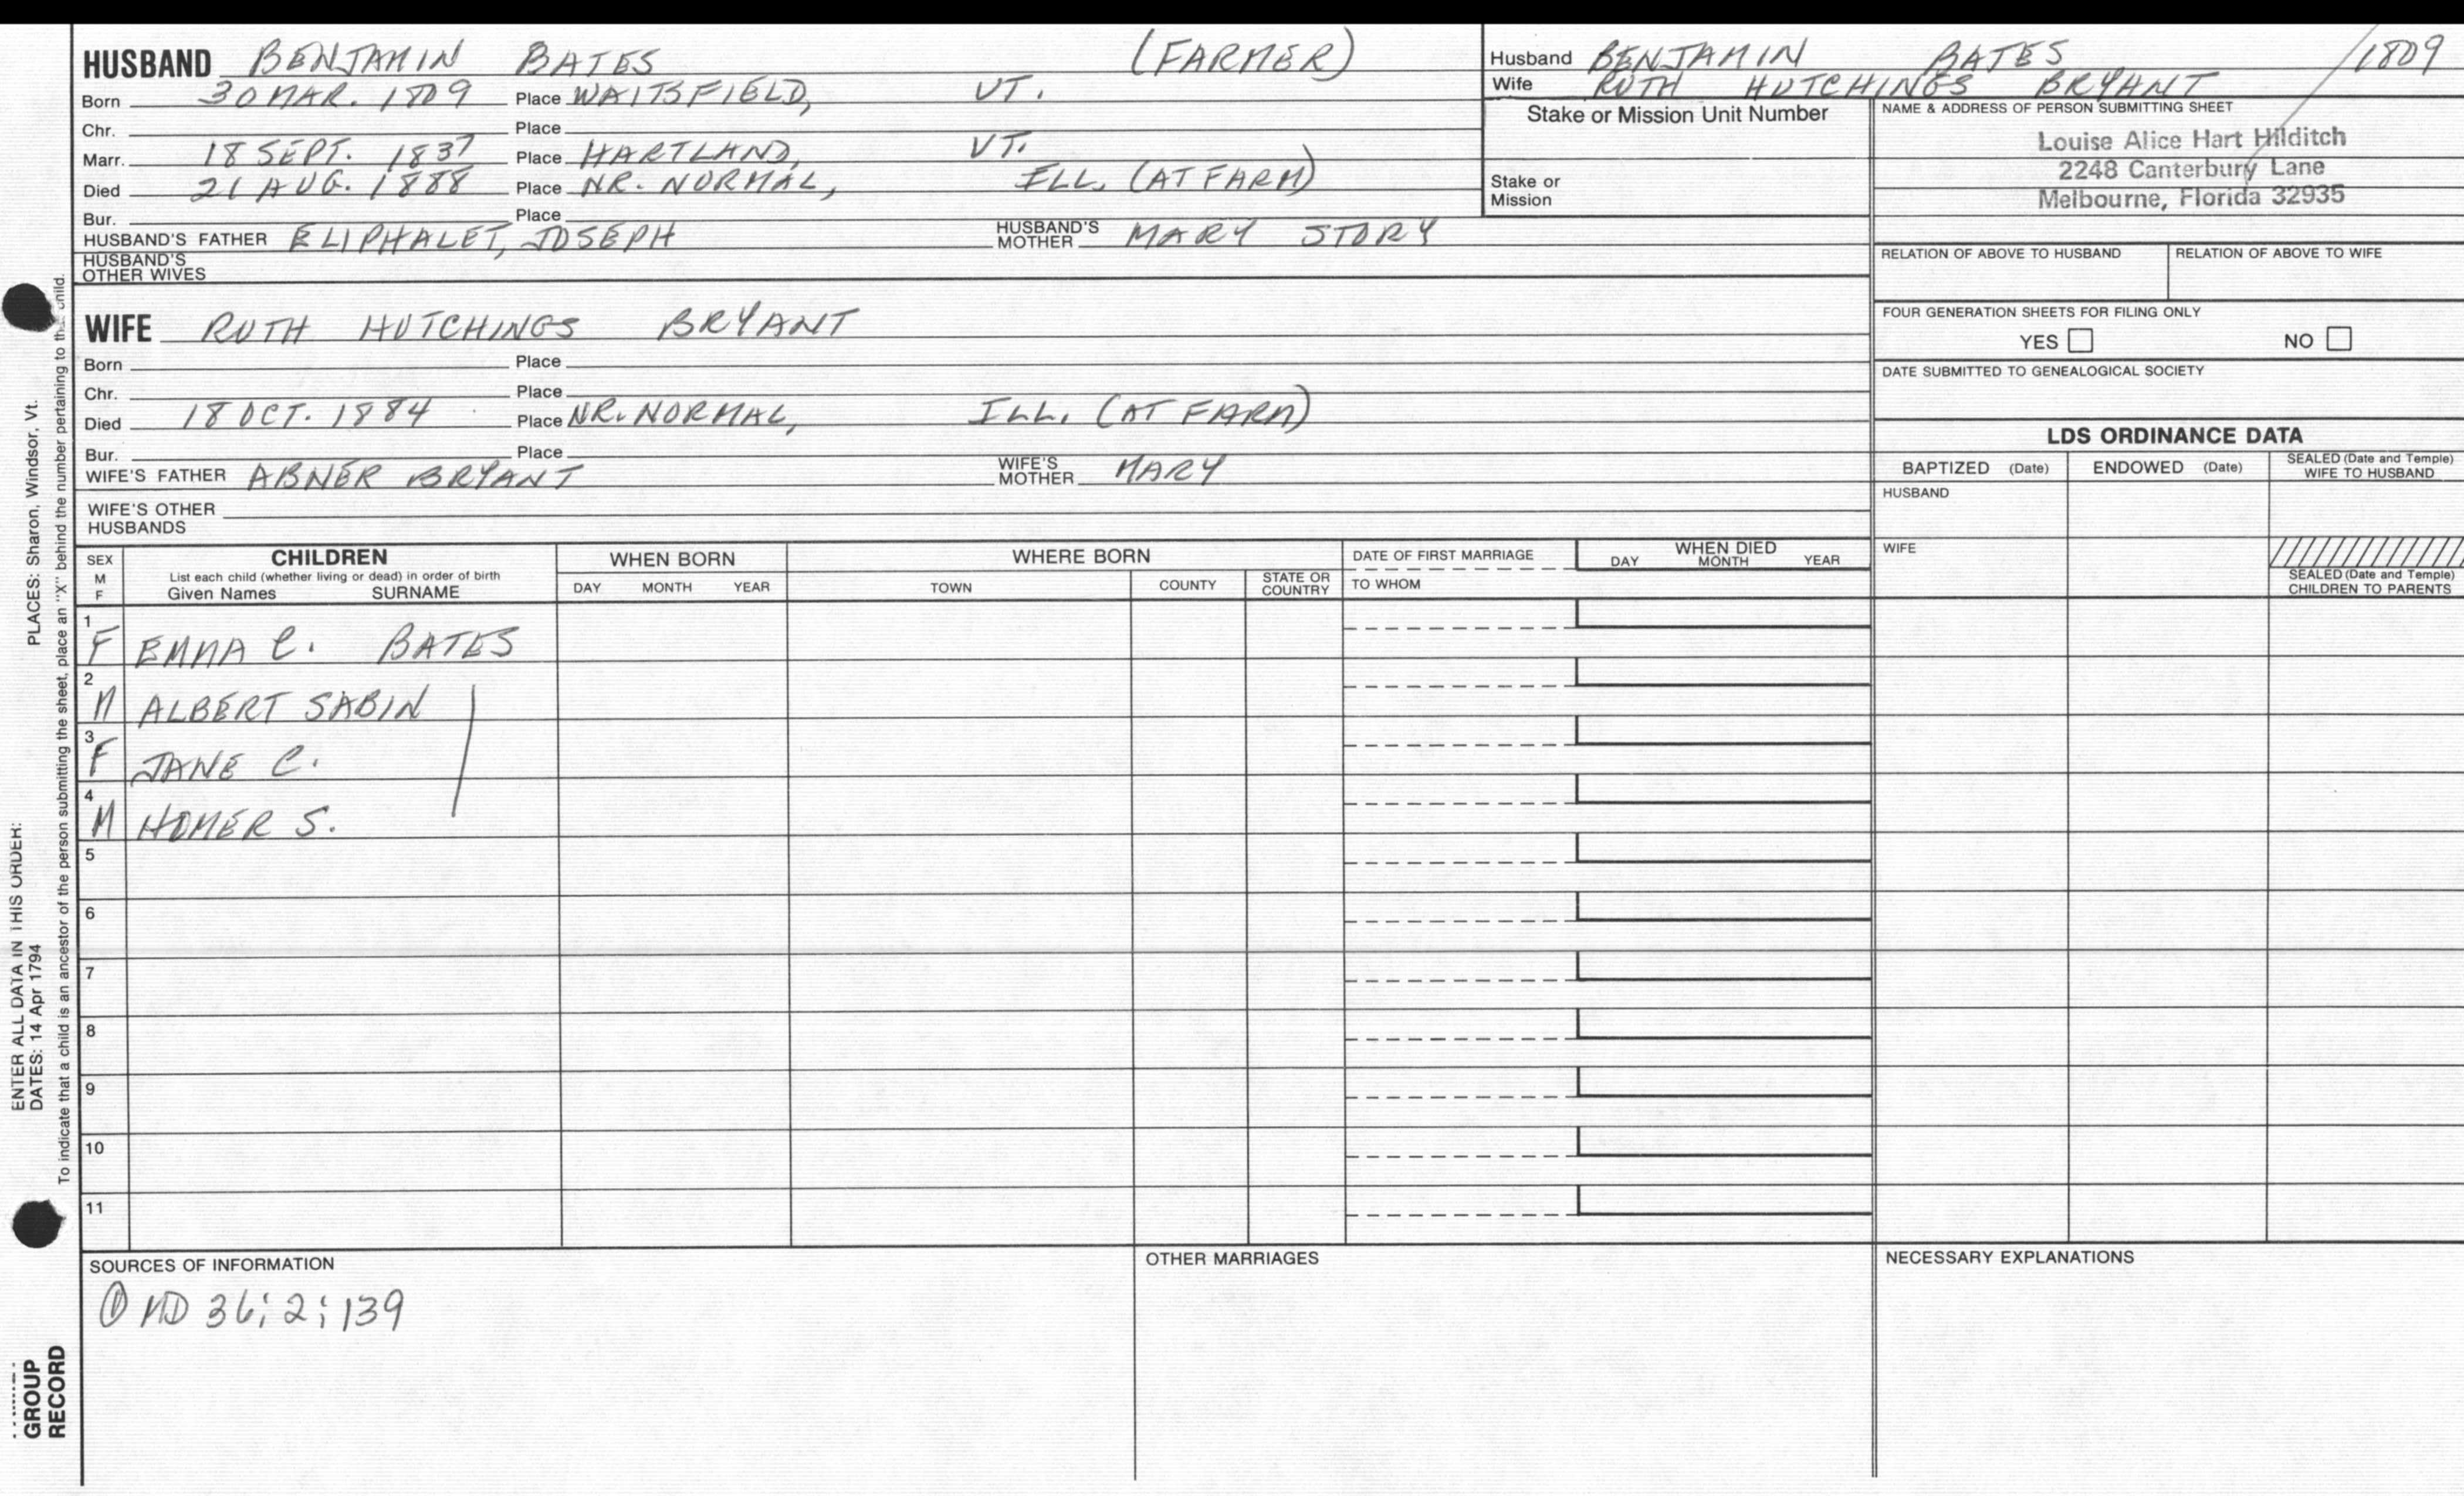 HUSBAND BENJAMIN BATES (FARMER)
Born 30 MAR. 1809 Place WAITSFIELD, VT.
Chr. Place
Marr. 18 SEPT. 1837 Place HARTLAND, VT.
Died 21 AUG. 1888 Place NR. NORMAL, ILL. (AT FARM)
Bur. Place
HUSBAND'S FATHER ELIPHALET, JOSEPH HUSBAND'S MOTHER MARY STORY
HUSBAND'S OTHER WIVES
WIFE RUTH HUTCHINGS BRYANT
Born Place
Chr. Place
Died 18 OCT. 1884 Place NR. NORMAL, ILL. (AT FARM)
Bur. Place
WIFE'S FATHER ABNER BRYANT WIFE'S MOTHER MARY
WIFE'S OTHER HUSBANDS
Husband BENJAMIN BATES /1809
Wife RUTH HUTCHINGS BRYANT
Stake or Mission Unit Number
Stake or Mission
NAME & ADDRESS OF PERSON SUBMITTING SHEET
Louise Alice Hart Hilditch
2248 Canterbury Lane
Melbourne, Florida 32935
RELATION OF ABOVE TO HUSBAND RELATION OF ABOVE TO WIFE
FOUR GENERATION SHEETS FOR FILING ONLY
YES NO
DATE SUBMITTED TO GENEALOGICAL SOCIETY
LDS ORDINANCE DATA
BAPTIZED (Date) ENDOWED (Date) SEALED (Date and Temple) WIFE TO HUSBAND
HUSBAND
WIFE
SEALED (Date and Temple) CHILDREN TO PARENTS
SEX M F
CHILDREN
List each child (whether living or dead) in order of birth
Given Names SURNAME
WHEN BORN
DAY MONTH YEAR
WHERE BORN
TOWN COUNTY STATE OR COUNTRY
DATE OF FIRST MARRIAGE
TO WHOM
WHEN DIED
DAY MONTH YEAR
1 F EMMA C. BATES
2 M ALBERT SABIN
3 F JANE C.
4 M HOMER S.
5
6
7
8
9
10
11
SOURCES OF INFORMATION
① MD 36; 2; 139
OTHER MARRIAGES
NECESSARY EXPLANATIONS
ENTER ALL DATA IN THIS ORDER:
DATES: 14 Apr 1794 PLACES: Sharon, Windsor, Vt.
To indicate that a child is an ancestor of the person submitting the sheet, place an "X" behind the number pertaining to that child.
GROUP
RECORD